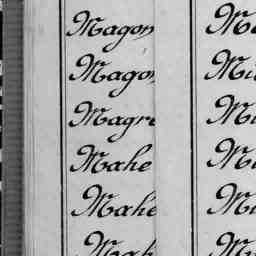 Magon
Magon
Magre
Mahe
Mahe
Mah
Ma
Mi
Mi
Mi
Mi
Mi